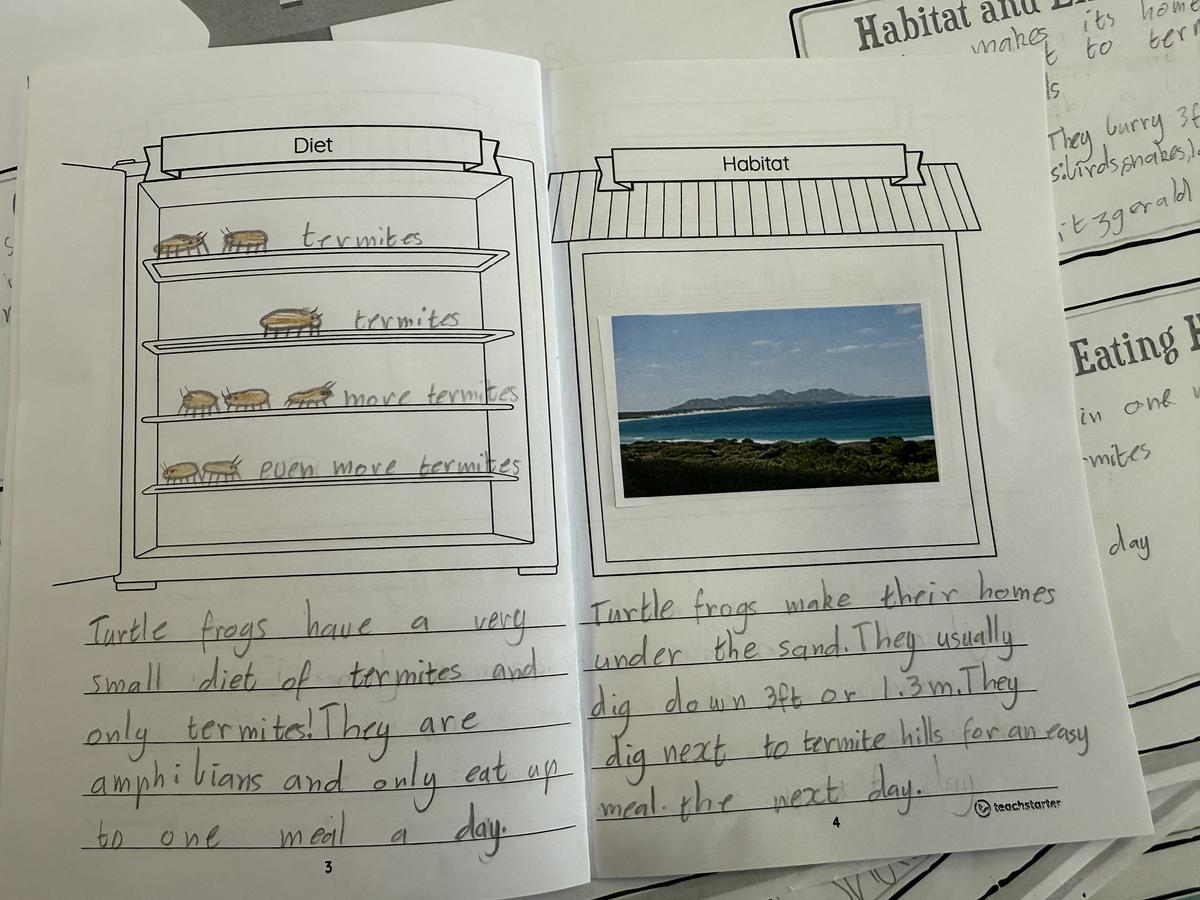 Diet
termites
termites
more termites
even more termites
Turtle frogs have a very
small diet of termites and
only termites! They are
amphibians and only eat up
to one meal a day.
3
Habitat
Turtle frogs make their homes
under the sand. They usually
dig down 3ft or 1.3m. They
dig next to termite hills for an easy
meal. the next day.
teachstarter
4
Habitat and
makes its home
to
They burry
birds, snakes,
Eating
in one
day